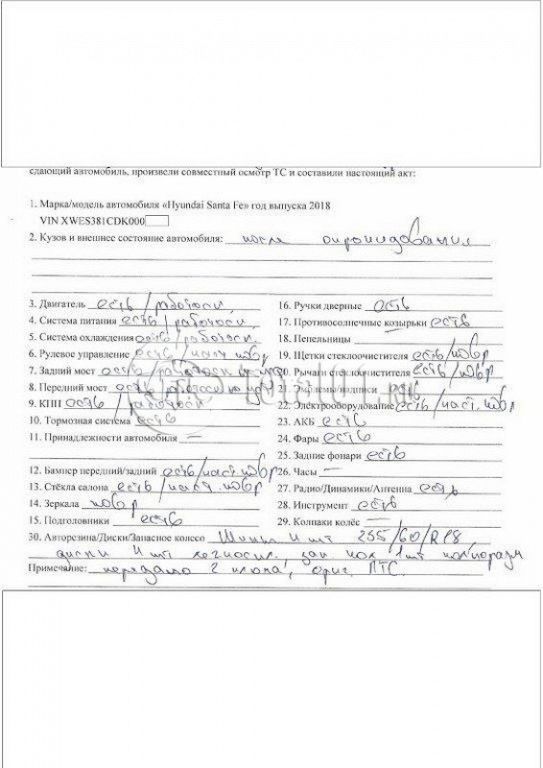 сдающий автомобиль, произвели совместный осмотр ТС и составили настоящий акт:
1. Марка/модель автомобиля «Hyundai Santa Fe» год выпуска 2018
VIN XWES381CDK000
2. Кузов и внешнее состояние автомобиля: после опрокидования
3. Двигатель есть / работосп.
4. Система питания есть / работосп.
5. Система охлаждения есть / работосп.
6. Рулевое управление есть / част. повр
7. Задний мост есть /
8. Передний мост есть /
9. КПП есть / работосп.
10. Тормозная система есть
11. Принадлежности автомобиля —
12. Бампер передний/задний есть/част. повр
13. Стёкла салона есть / част. повр
14. Зеркала повр
15. Подголовники есть
16. Ручки дверные есть
17. Противосолнечные козырьки есть
18. Пепельницы —
19. Щетки стеклоочистителя есть/повр
20. Рычаги стеклоочистителя есть / повр
21. Эмблемы/надписи есть
22. Электрооборудование есть/част. повр
23. АКБ есть
24. Фары есть
25. Задние фонари есть
26. Часы —
27. Радио/Динамики/Антенна есть
28. Инструмент есть
29. Колпаки колёс —
30. Авторезина/Диски/Запасное колесо Шины 4 шт 235/60/R18
диски 4 шт легкоспл. зап кол 1шт
Примечание: передано 2 ключа, ориг. ПТС.